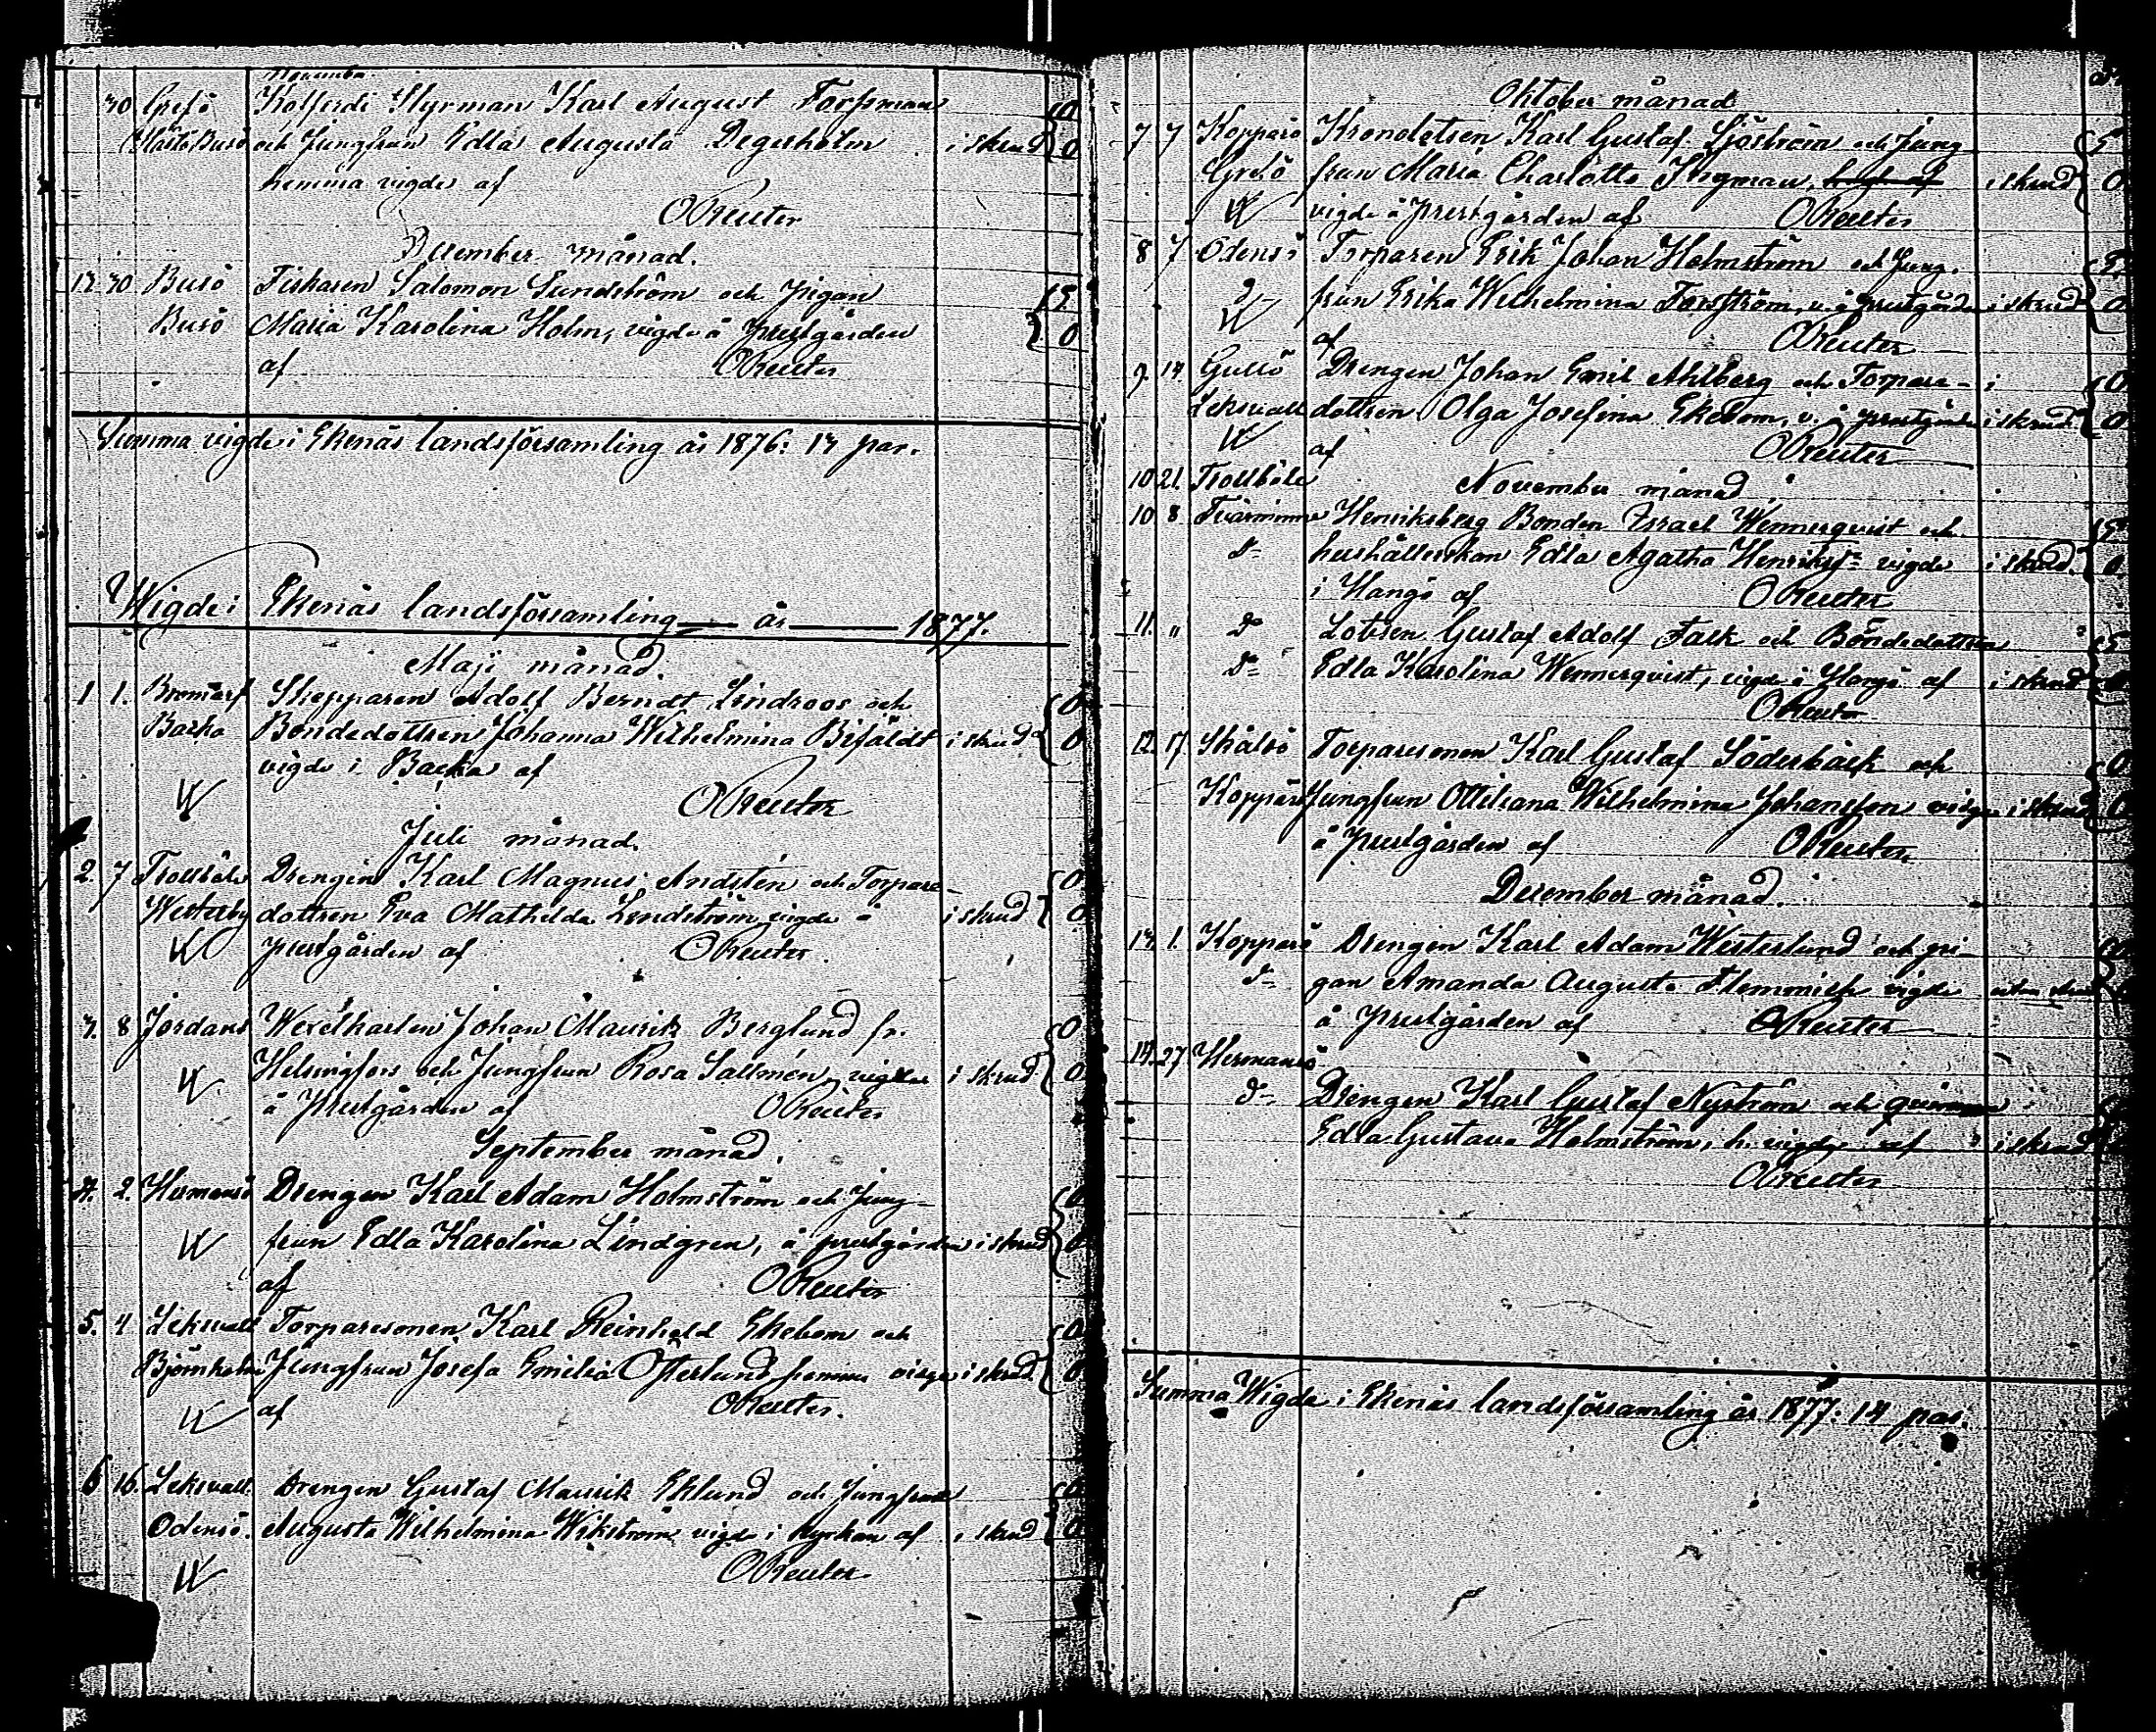 November
30 Grefö Kofferdi Styrman Karl August Forssman 0
Busö och Jungfrun Edla Augusta Degerholm i skrud 0
hemma vigde af
OReuter
December månad.
13. 30 Busö Fiskaren Salomon Sundström och Pigan
Busö Maria Karolina Holm, vigde å prestgården 0
af OReuter
Summa vigde i Ekenäs landsförsamling år 1876: 13 par.
Wigde i Ekenäs landsförsamling år 1877.
Maji månad.
1 1. Bromarf Skepparen Adolf Berndt Lindroos och 0
Backa Bondedottren Johanna Wilhelmina Bifäldt i skrud 0
vigde i Backa af
OReuter
Juli månad.
2. 7 Trollböle Drengen Karl Magnus Andstén och Torpare- 0
Westerby dottren Eva Mathilda Lindström vigde å i skrud 0
prestgården af OReuter
3. 8 Jordans Wexelkarlen Johan Maurik Berglund fr. 0
Helsingfors och Jungfrun Rosa Sallmén, vigde i skrud 0
å prestgården af OReuter
September månad.
4. 2. Hermansö Drengen Karl Adam Holmström och Jung- 0
frun Edla Karolina Lindgren, å prestgården i skrud 0
af OReuter
5. 4 Leksvall Torparesonen Karl Reinhold Ekebom och 0
Björnholm Jungfrun Josefa Emilia Österlund hemma vigde i skrud 0
af OReuter.
6 16. Leksvall. Drengen Gustaf Maurik Eklund och Jungfrun 0
Odensö. Augusta Wilhelmina Wikström vigde i kyrkan af i skrud 0
OReuter
Oktober månad
7 7 Kopparö Kronolotsen Karl Gustaf Sjöström och Jung-
Grefö frun Maria Charlotta Ingman, i skrud 0
vigde å prestgården af OReuter
8 7 Odensö Torparen Erik Johan Holmström och Jung-
d- frun Erika Wilhelmina Forsström, v. å prestgården i skrud 0
af OReuter
9. 14. Gullö Drengen Johan Emil Ahlberg och Torpare- 0
Leksvall dottren Olga Josefina Ekebom, v. å prestgården i skrud 0
af OReuter
10 21. Trollböle November månad
10 8 Tvärminne Henriksberg Bonden Israel Wennerqvist och
d- hushållerskan Edla Agatha Henriksd:r vigde i skrud. 0
i Hangö af OReuter
11. " d- Lotsen Gustaf Adolf Falk och Bondedottren
d- Edla Karolina Wennerqvist, vigde i Hangö af i skrud
OReuter
12. 17. Skåldö Torparesonen Karl Gustaf Söderbäck och 0
Kopparö Jungfrun Ottiliana Wilhelmina Johansson vigde i skrud 0
å prestgården af OReuter
December månad.
13. 1. Kopparö Drengen Karl Adam Westerlund och pi-
d- gan Amanda Augusta Flemmich vigde utan skrud
å prestgården af OReuter
14. 27 Hermansö
d- Drengen Karl Gustaf Nyström och qvinnan
Edla Gustava Holmström, h. vigde af i skrud
OReuter
Summa Wigde i Ekenäs landsförsamling år 1877: 14 par.